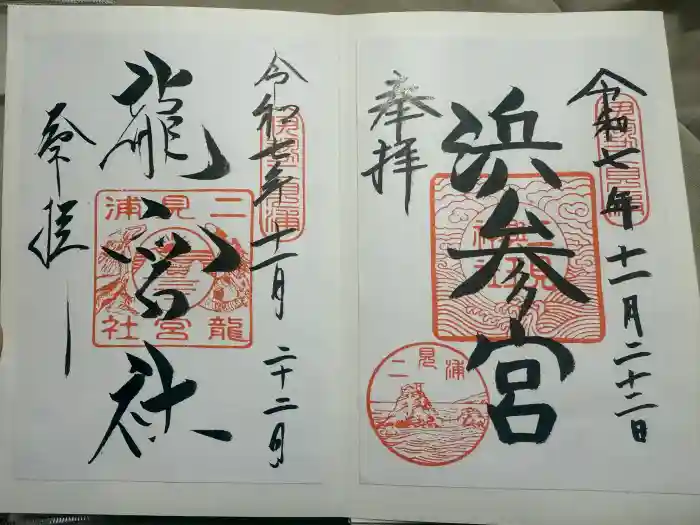 令和七年十一月二十二日
浜参宮
奉拝
二見浦
令和七年十一月二十二日
龍宮社
二見浦
龍宮社
奉拝